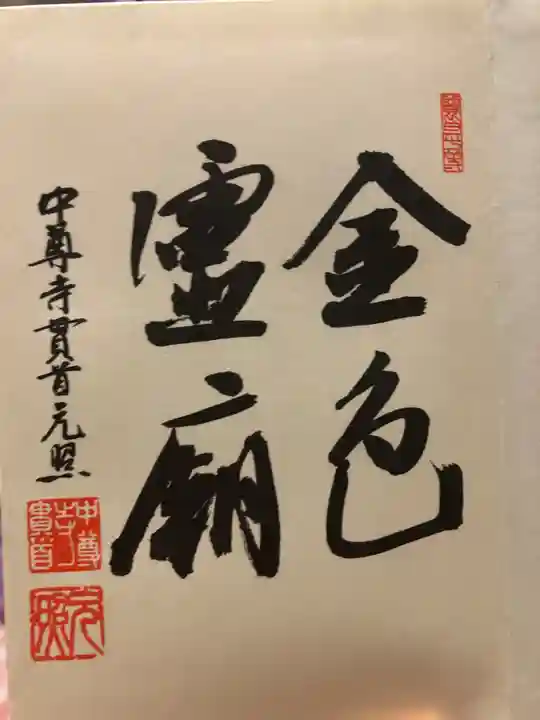 金色
靈廟
中尊寺貫首元照
中尊
寺
貫首
元照